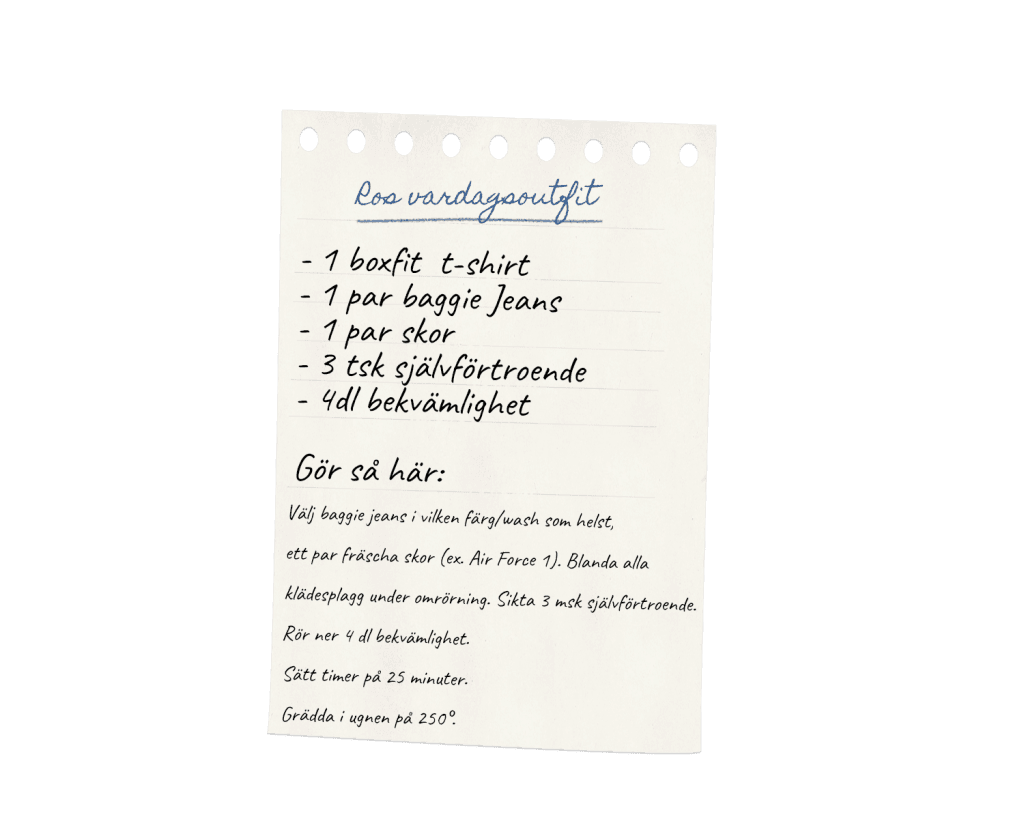 Ros vardagsoutfit
- 1 boxfit t-shirt
- 1 par baggie Jeans
- 1 par skor
- 3 tsk självförtroende
- 4dl bekvämlighet
Gör så här:
Välj baggie jeans i vilken färg/wash som helst,
ett par fräscha skor (ex. Air Force 1). Blanda alla
klädesplagg under omrörning. Sikta 3 msk självförtroende.
Rör ner 4 dl bekvämlighet.
Sätt timer på 25 minuter.
Grädda i ugnen på 250°.